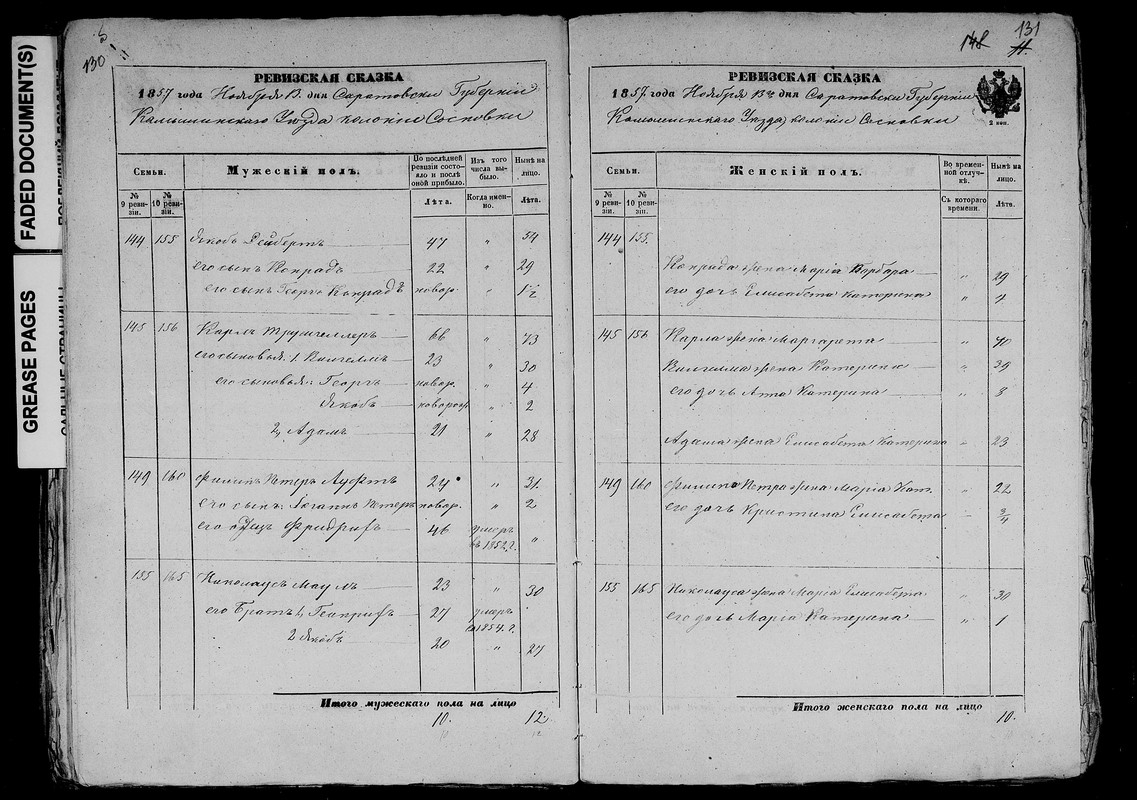 FADED DOCUMENT(S)
GREASE PAGES
130
РЕВИЗСКАЯ СКАЗКА
1857 года Ноября 13 дня Саратовской Губернии
Камышинскаго Уѣзда колоніи Сосновки
Семьи.
Мужескій полъ.
По послѣдней ревизіи состояло и послѣ оной прибыло.
Изъ того числа выбыло.
Нынѣ на лицо.
№ 9 ревизіи.
№ 10 ревизіи.
Лѣта.
Когда именно.
Лѣта.
144 155 Якобъ Сейбертъ 47 " 54
его сынъ Конрадъ 22 " 29
его сынъ Георгъ Конрадъ новор. " 1½
145 156 Карлъ 66 " 73
его сыновья: 1. Вилгелмъ 23 " 30
его сыновья: Георгъ новор. " 4
Якобъ новорож " 2
2, Адамъ 21 " 28
149 160 Филипъ Петеръ 24 " 31
его сынъ: Іоганъ Петеръ новор. " 2
его отецъ Фридрихъ 46 умеръ въ 1852 г. "
155 165 Николаусъ Маулъ 23 " 30
его Братъ 1, Генрихъ 27 умеръ въ 1854. г.
2 Якобъ 20 " 27
Итого мужескаго пола на лицо
10. 12.
148 131
РЕВИЗСКАЯ СКАЗКА
1857 года Ноября 13 дня Саратовской Губерніи
Камышинскаго Уѣзда колоніи Сосновки
2 коп.
Семьи.
Женскій полъ.
Во временной отлучкѣ.
Нынѣ на лицо.
№ 9 ревизіи.
№ 10 ревизіи.
Съ котораго времени.
Лѣта.
144 155.
Конрада жена Марія Барбара " 29
его дочь Елисабета Катерина " 4
145 156 Карла жена Маргарета " 40
Вилгелма жена Катерина " 39
его дочь Анна Катерина " 8
Адама жена Елисабета Катерина " 23
149 160 Филипа Петра жена Марія Кат. " 22
его дочь Кристина Елисабета " ¾
155 165 Николауса жена Марія Елисабета " 30
его дочь Марія Катерина " 1
Итого женскаго пола на лицо
10.